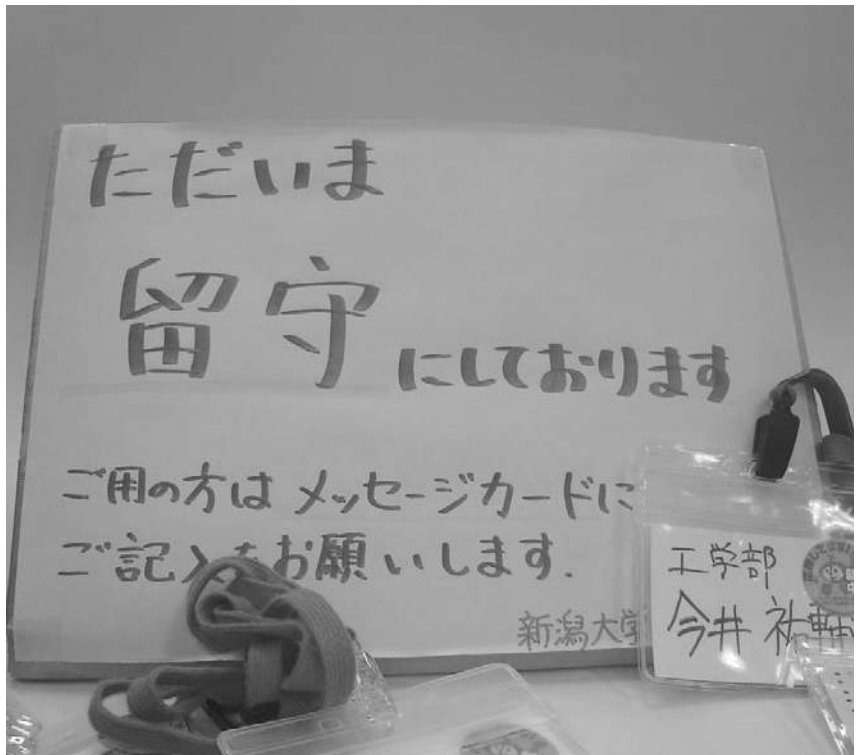 ただいま
留守にしております
ご用の方はメッセージカードに
ご記入をお願いします.
新潟大学
工学部
今井 祐輔